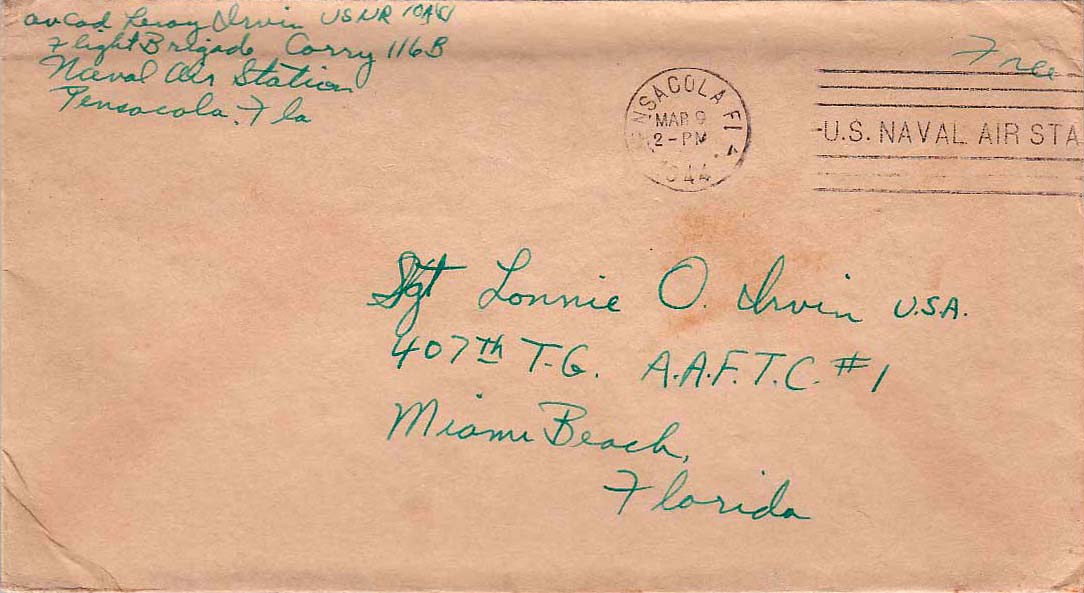 AvCad Leroy Irvin USNR
Flight Brigade Corry 116B
Naval Air Station
Pensacola, Fla
Free
PENSACOLA FLA.
MAR 9
2-PM
1944
U.S. NAVAL AIR STA
Sgt Lonnie O. Irvin U.S.A.
407th T-G. A.A.F.T.C. #1
Miami Beach,
Florida